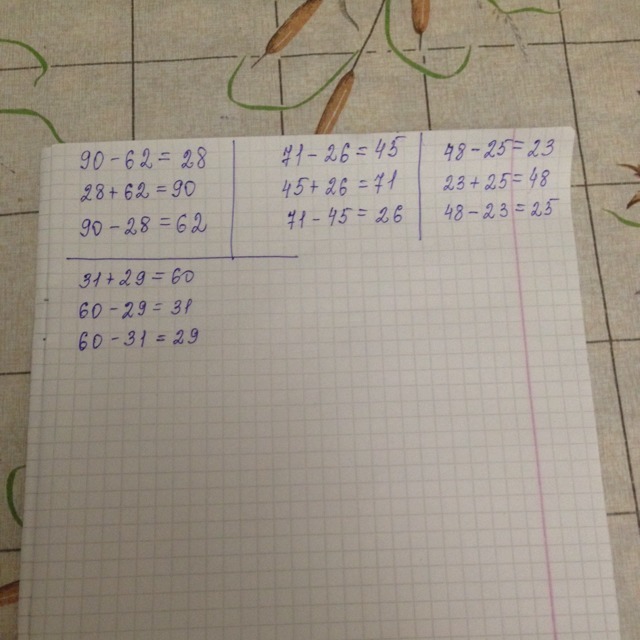 90-62=28
28+62=90
90-28=62
71-26=45
45+26=71
71-45=26
48-25=23
23+25=48
48-23=25
31+29=60
60-29=31
60-31=29